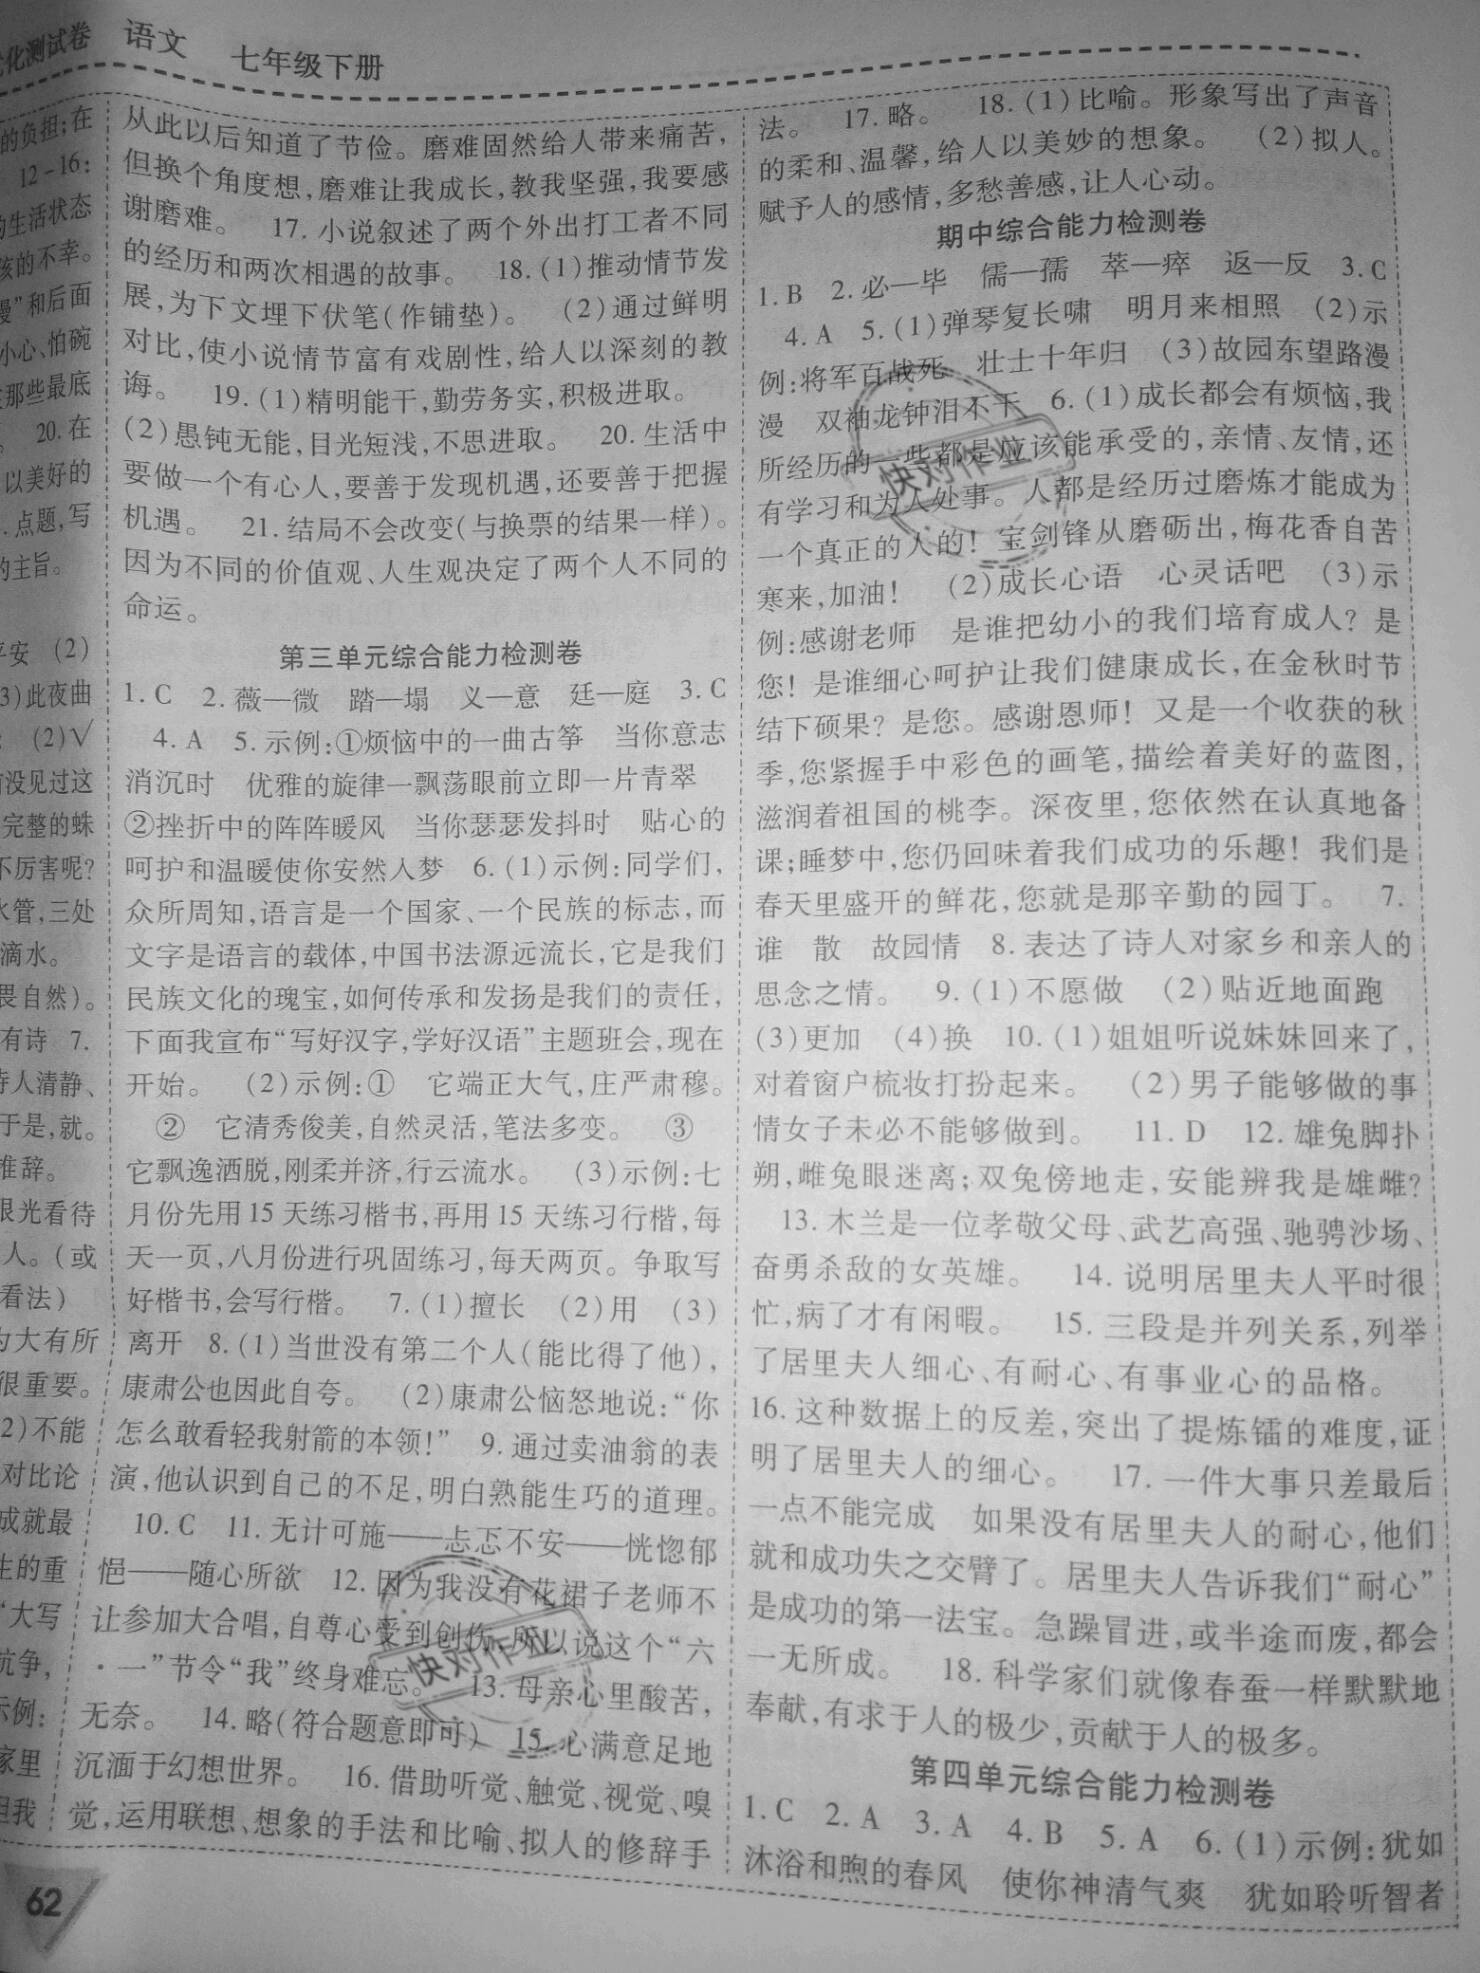 优化测试卷 语文 七年级下册
的负担;在
12-16:
的生活状态
孩的不幸。
”和后面
小心、怕碗
那些最底
20.在
以美好的
点题,写
的主旨。
平安 (2)
3)此夜曲
(2)√
有没见过这
完整的蛛
不厉害呢?
水管,三处
滴水。
畏自然)。
有诗 7.
诗人清静、
于是,就。
推辞。
眼光看待
人。(或
看法)
为大有所
很重要。
2)不能
对比论
成就最
生的重
“大写
抗争,
示例:
家里
但我
从此以后知道了节俭。磨难固然给人带来痛苦,
但换个角度想,磨难让我成长,教我坚强,我要感
谢磨难。 17.小说叙述了两个外出打工者不同
的经历和两次相遇的故事。 18.(1)推动情节发
展,为下文埋下伏笔(作铺垫)。 (2)通过鲜明
对比,使小说情节富有戏剧性,给人以深刻的教
诲。 19.(1)精明能干,勤劳务实,积极进取。
(2)愚钝无能,目光短浅,不思进取。 20.生活中
要做一个有心人,要善于发现机遇,还要善于把握
机遇。 21.结局不会改变(与换票的结果一样)。
因为不同的价值观、人生观决定了两个人不同的
命运。
第三单元综合能力检测卷
1.C 2.薇—微 踏—塌 义—意 廷—庭 3.C
4.A 5.示例:①烦恼中的一曲古筝 当你意志
消沉时 优雅的旋律一飘荡眼前立即一片青翠
②挫折中的阵阵暖风 当你瑟瑟发抖时 贴心的
呵护和温暖使你安然人梦 6.(1)示例:同学们,
众所周知,语言是一个国家、一个民族的标志,而
文字是语言的载体,中国书法源远流长,它是我们
民族文化的瑰宝,如何传承和发扬是我们的责任,
下面我宣布“写好汉字,学好汉语”主题班会,现在
开始。 (2)示例:① 它端正大气,庄严肃穆。
② 它清秀俊美,自然灵活,笔法多变。 ③
它飘逸洒脱,刚柔并济,行云流水。 (3)示例:七
月份先用15天练习楷书,再用15天练习行楷,每
天一页,八月份进行巩固练习,每天两页。争取写
好楷书,会写行楷。 7.(1)擅长 (2)用 (3)
离开 8.(1)当世没有第二个人(能比得了他),
康肃公也因此自夸。 (2)康肃公恼怒地说:“你
怎么敢看轻我射箭的本领!” 9.通过卖油翁的表
演,他认识到自己的不足,明白熟能生巧的道理。
10.C 11.无计可施——忐忑不安——恍惚郁
悒——随心所欲 12.因为我没有花裙子老师不
让参加大合唱,自尊心受到创伤,所以说这个“六
·一”节令“我”终身难忘。 13.母亲心里酸苦,
无奈。 14.略(符合题意即可) 15.心满意足地
沉湎于幻想世界。 16.借助听觉、触觉、视觉、嗅
觉,运用联想、想象的手法和比喻、拟人的修辞手
法。 17.略。 18.(1)比喻。形象写出了声音
的柔和、温馨,给人以美妙的想象。 (2)拟人。
赋予人的感情,多愁善感,让人心动。
期中综合能力检测卷
1.B 2.必—毕 儒—孺 萃—瘁 返—反 3.C
4.A 5.(1)弹琴复长啸 明月来相照 (2)示
例:将军百战死 壮士十年归 (3)故园东望路漫
漫 双袖龙钟泪不干 6.(1)成长都会有烦恼,我
所经历的一些都是应该能承受的,亲情、友情,还
有学习和为人处事。人都是经历过磨炼才能成为
一个真正的人的!宝剑锋从磨砺出,梅花香自苦
寒来,加油! (2)成长心语 心灵话吧 (3)示
例:感谢老师 是谁把幼小的我们培育成人?是
您!是谁细心呵护让我们健康成长,在金秋时节
结下硕果?是您。感谢恩师!又是一个收获的秋
季,您紧握手中彩色的画笔,描绘着美好的蓝图,
滋润着祖国的桃李。深夜里,您依然在认真地备
课;睡梦中,您仍回味着我们成功的乐趣!我们是
春天里盛开的鲜花,您就是那辛勤的园丁。 7.
谁 散 故园情 8.表达了诗人对家乡和亲人的
思念之情。 9.(1)不愿做 (2)贴近地面跑
(3)更加 (4)换 10.(1)姐姐听说妹妹回来了,
对着窗户梳妆打扮起来。 (2)男子能够做的事
情女子未必不能够做到。 11.D 12.雄兔脚扑
朔,雌兔眼迷离;双兔傍地走,安能辨我是雄雌?
13.木兰是一位孝敬父母、武艺高强、驰骋沙场、
奋勇杀敌的女英雄。 14.说明居里夫人平时很
忙,病了才有闲暇。 15.三段是并列关系,列举
了居里夫人细心、有耐心、有事业心的品格。
16.这种数据上的反差,突出了提炼镭的难度,证
明了居里夫人的细心。 17.一件大事只差最后
一点不能完成 如果没有居里夫人的耐心,他们
就和成功失之交臂了。居里夫人告诉我们“耐心”
是成功的第一法宝。急躁冒进,或半途而废,都会
一无所成。 18.科学家们就像春蚕一样默默地
奉献,有求于人的极少,贡献于人的极多。
第四单元综合能力检测卷
1.C 2.A 3.A 4.B 5.A 6.(1)示例:犹如
沐浴和煦的春风 使你神清气爽 犹如聆听智者
快对作业
快对作业
62